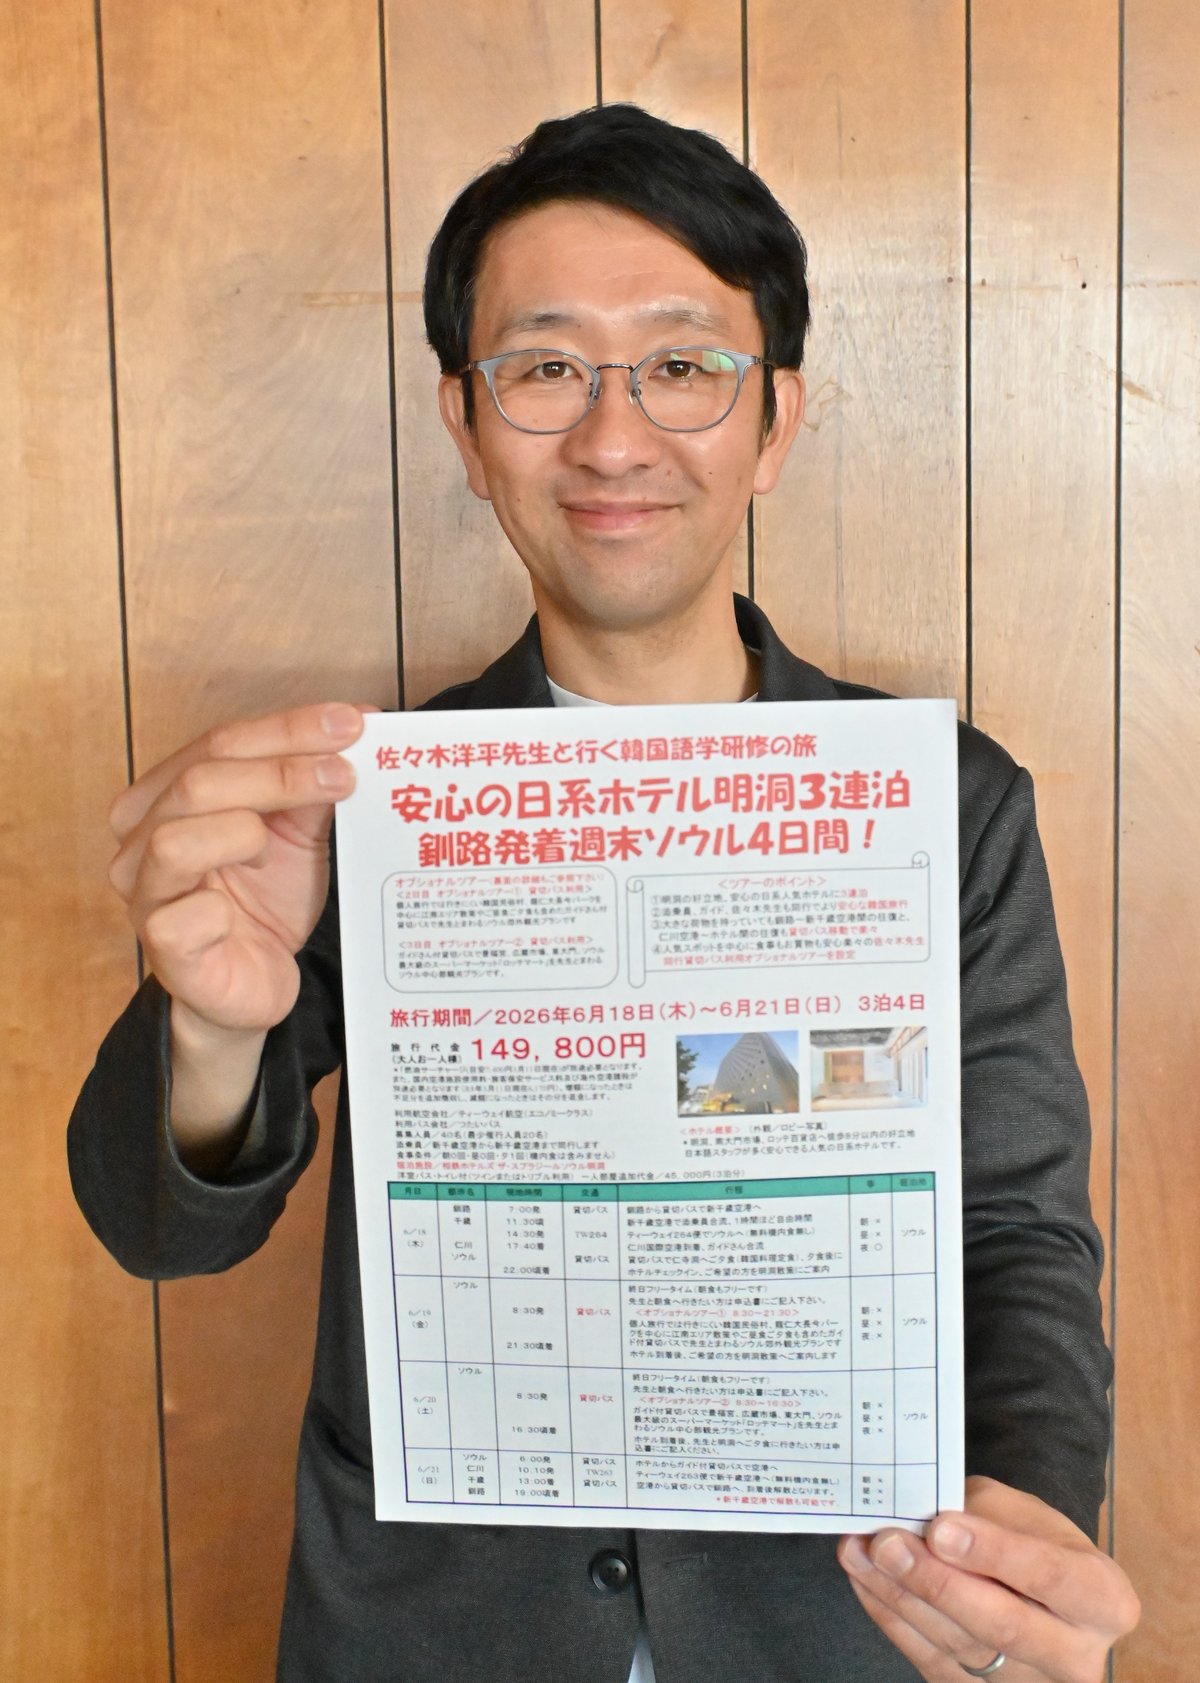 佐々木洋平先生と行く韓国語学研修の旅
安心の日系ホテル明洞3連泊
釧路発着週末ソウル4日間！
オプショナルツアー(裏面の詳細もご参照下さい)
＜2日目 オプショナルツアー① 貸切バス利用＞
個人旅行では行きにくい韓国民俗村、龍仁大長今パークを
中心に江南エリア散策やご昼食ご夕食も含めたガイドさん付
貸切バスで先生とまわるソウル郊外観光プランです
＜3日目 オプショナルツアー② 貸切バス利用＞
ガイドさん付貸切バスで景福宮、広蔵市場、東大門、ソウル
最大級のスーパーマーケット「ロッテマート」を先生とまわる
ソウル中心部観光プランです。
＜ツアーのポイント＞
①明洞の好立地、安心の日系人気ホテルに3連泊
②添乗員、ガイド、佐々木先生も同行でより安心な韓国旅行
③大きな荷物を持っていても釧路－新千歳空港間の往復と、
仁川空港～ホテル間の往復も貸切バス移動で楽々
④人気スポットを中心に食事もお買物も安心楽々の佐々木先生
同行貸切バス利用オプショナルツアーを設定
旅行期間／2026年6月18日(木)～6月21日(日) 3泊4日
旅行代金
(大人お一人様) 149,800円
不足分を追加徴収し、減額になったときはその分を返金します。
利用航空会社／ティーウェイ航空(エコノミークラス)
利用バス会社／つたいバス
募集人員／40名(最少催行人員20名)
添乗員／新千歳空港から新千歳空港まで同行します
食事条件／朝0回・昼0回・夕1回(機内食は含みません)
宿泊施設／相鉄ホテルズ ザ・スプラジールソウル明洞
洋室バス・トイレ付(ツインまたはトリプル利用) 一人部屋追加代金／45,000円(3泊分)
＜ホテル概要＞ (外観／ロビー写真)
＊明洞、南大門市場、ロッテ百貨店へ徒歩8分以内の好立地
日本語スタッフが多く安心できる人気の日系ホテルです。
月日 都市名 現地時間 交通 行程 食 宿泊地
6／18
(木)
釧路 7:00発 貸切バス 釧路から貸切バスで新千歳空港へ
千歳 11:30頃 新千歳空港で添乗員合流、1時間ほど自由時間 朝:×
14:30発 TW264 ティーウェイ264便でソウルへ(無料機内食無し) 昼:× ソウル
仁川 17:40着 仁川国際空港到着、ガイドさん合流 夜:○
ソウル 貸切バス 貸切バスで仁寺洞へご夕食(韓国料理定食)、夕食後に
22:00頃着 ホテルチェックイン、ご希望の方を明洞散策にご案内
6／19
(金)
ソウル 終日フリータイム(朝食もフリーです)
先生と朝食へ行きたい方は申込書にご記入下さい。
8:30発 貸切バス ＜オプショナルツアー① 8:30～21:30＞ 朝:×
個人旅行では行きにくい韓国民俗村、龍仁大長今パー 昼:× ソウル
クを中心に江南エリア散策やご昼食ご夕食も含めたガイ 夜:×
21:30頃着 ド付貸切バスで先生とまわるソウル郊外観光プランです
ホテル到着後、ご希望の方を明洞散策へご案内します
6／20
(土)
ソウル 終日フリータイム(朝食もフリーです)
先生と朝食へ行きたい方は申込書にご記入下さい。
8:30発 貸切バス ＜オプショナルツアー② 8:30～16:30＞
ガイド付貸切バスで景福宮、広蔵市場、東大門、ソウル 朝:×
最大級のスーパーマーケット「ロッテマート」を先生とま 昼:× ソウル
16:30頃着 わるソウル中心部観光プランです。 夜:×
ホテル到着後、先生と明洞へご夕食に行きたい方は申
込書にご記入ください。
6／21
(日)
ソウル 6:00発 貸切バス ホテルからガイド付貸切バスで空港へ
仁川 10:10発 TW263 ティーウェイ263便で新千歳空港へ(無料機内食無し) 朝:×
千歳 13:00着 貸切バス 空港から貸切バスで釧路へ、到着後解散となります。 昼:×
釧路 19:00頃着 ＊新千歳空港で解散も可能です。 夜:×